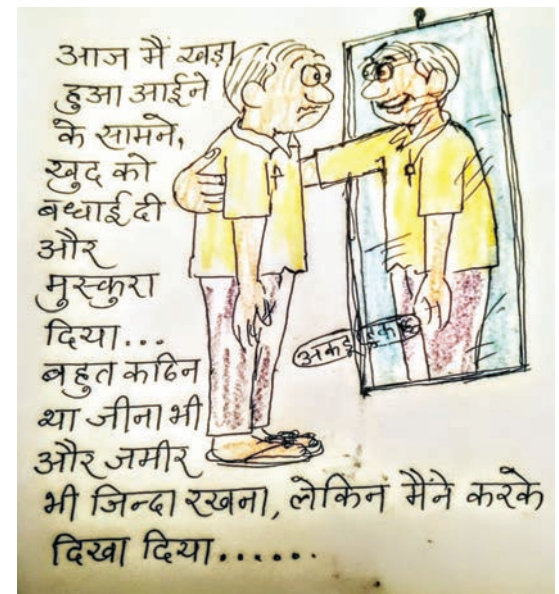 आज मैं खड़ा
हुआ आईने
के सामने,
खुद को
बधाई दी
और
मुस्कुरा
दिया...
बहुत कठिन
था जीना भी
और जमीर
भी जिन्दा रखना, लेकिन मैंने करके
दिखा दिया......